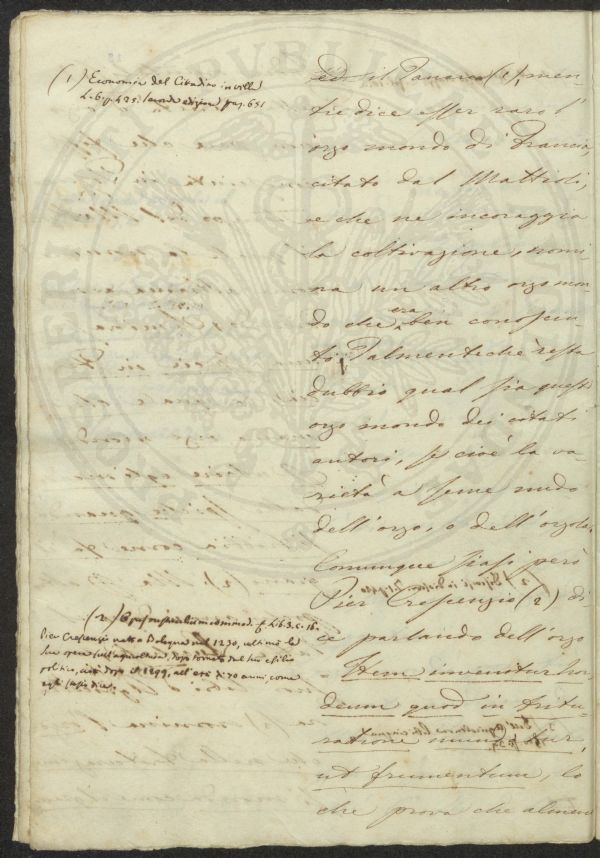 (1) Economia del Cittadino in villa
L. 6. p. 425. seconda edizione, pag. 651
ed il Tanara (1), men-
tre dice esser raro l'
orzo mondo di Francia,
citato dal Mattioli,
e che ne incoraggia
la coltivazione, nomi-
na un altro orzo mon-
do che era ben conosciu-
to, talmenteché resta
dubbio qual sia questo
orzo mondo dei citati
autori, se cioè la va-
rietà a seme nudo
dell'orzo, o dell'orzola.
Comunque siasi però
Pier Crescenzio (2) di-
ce parlando dell'orzo
Item invenitur hor-
deum quod in tritu-
ratione mundatur,
ut frumentum, lo
che prova che almeno
(2) Opus ruralium commod. Lib. 3. c. 16.
Pier Crescenzio natto a Bologna nel 1230, ultimò la
sua opera sull'agricoltura, dopo tornato dal suo esilio
politico, cioè dopo il 1299, all'età di 70 anni, come
egli stesso dice.